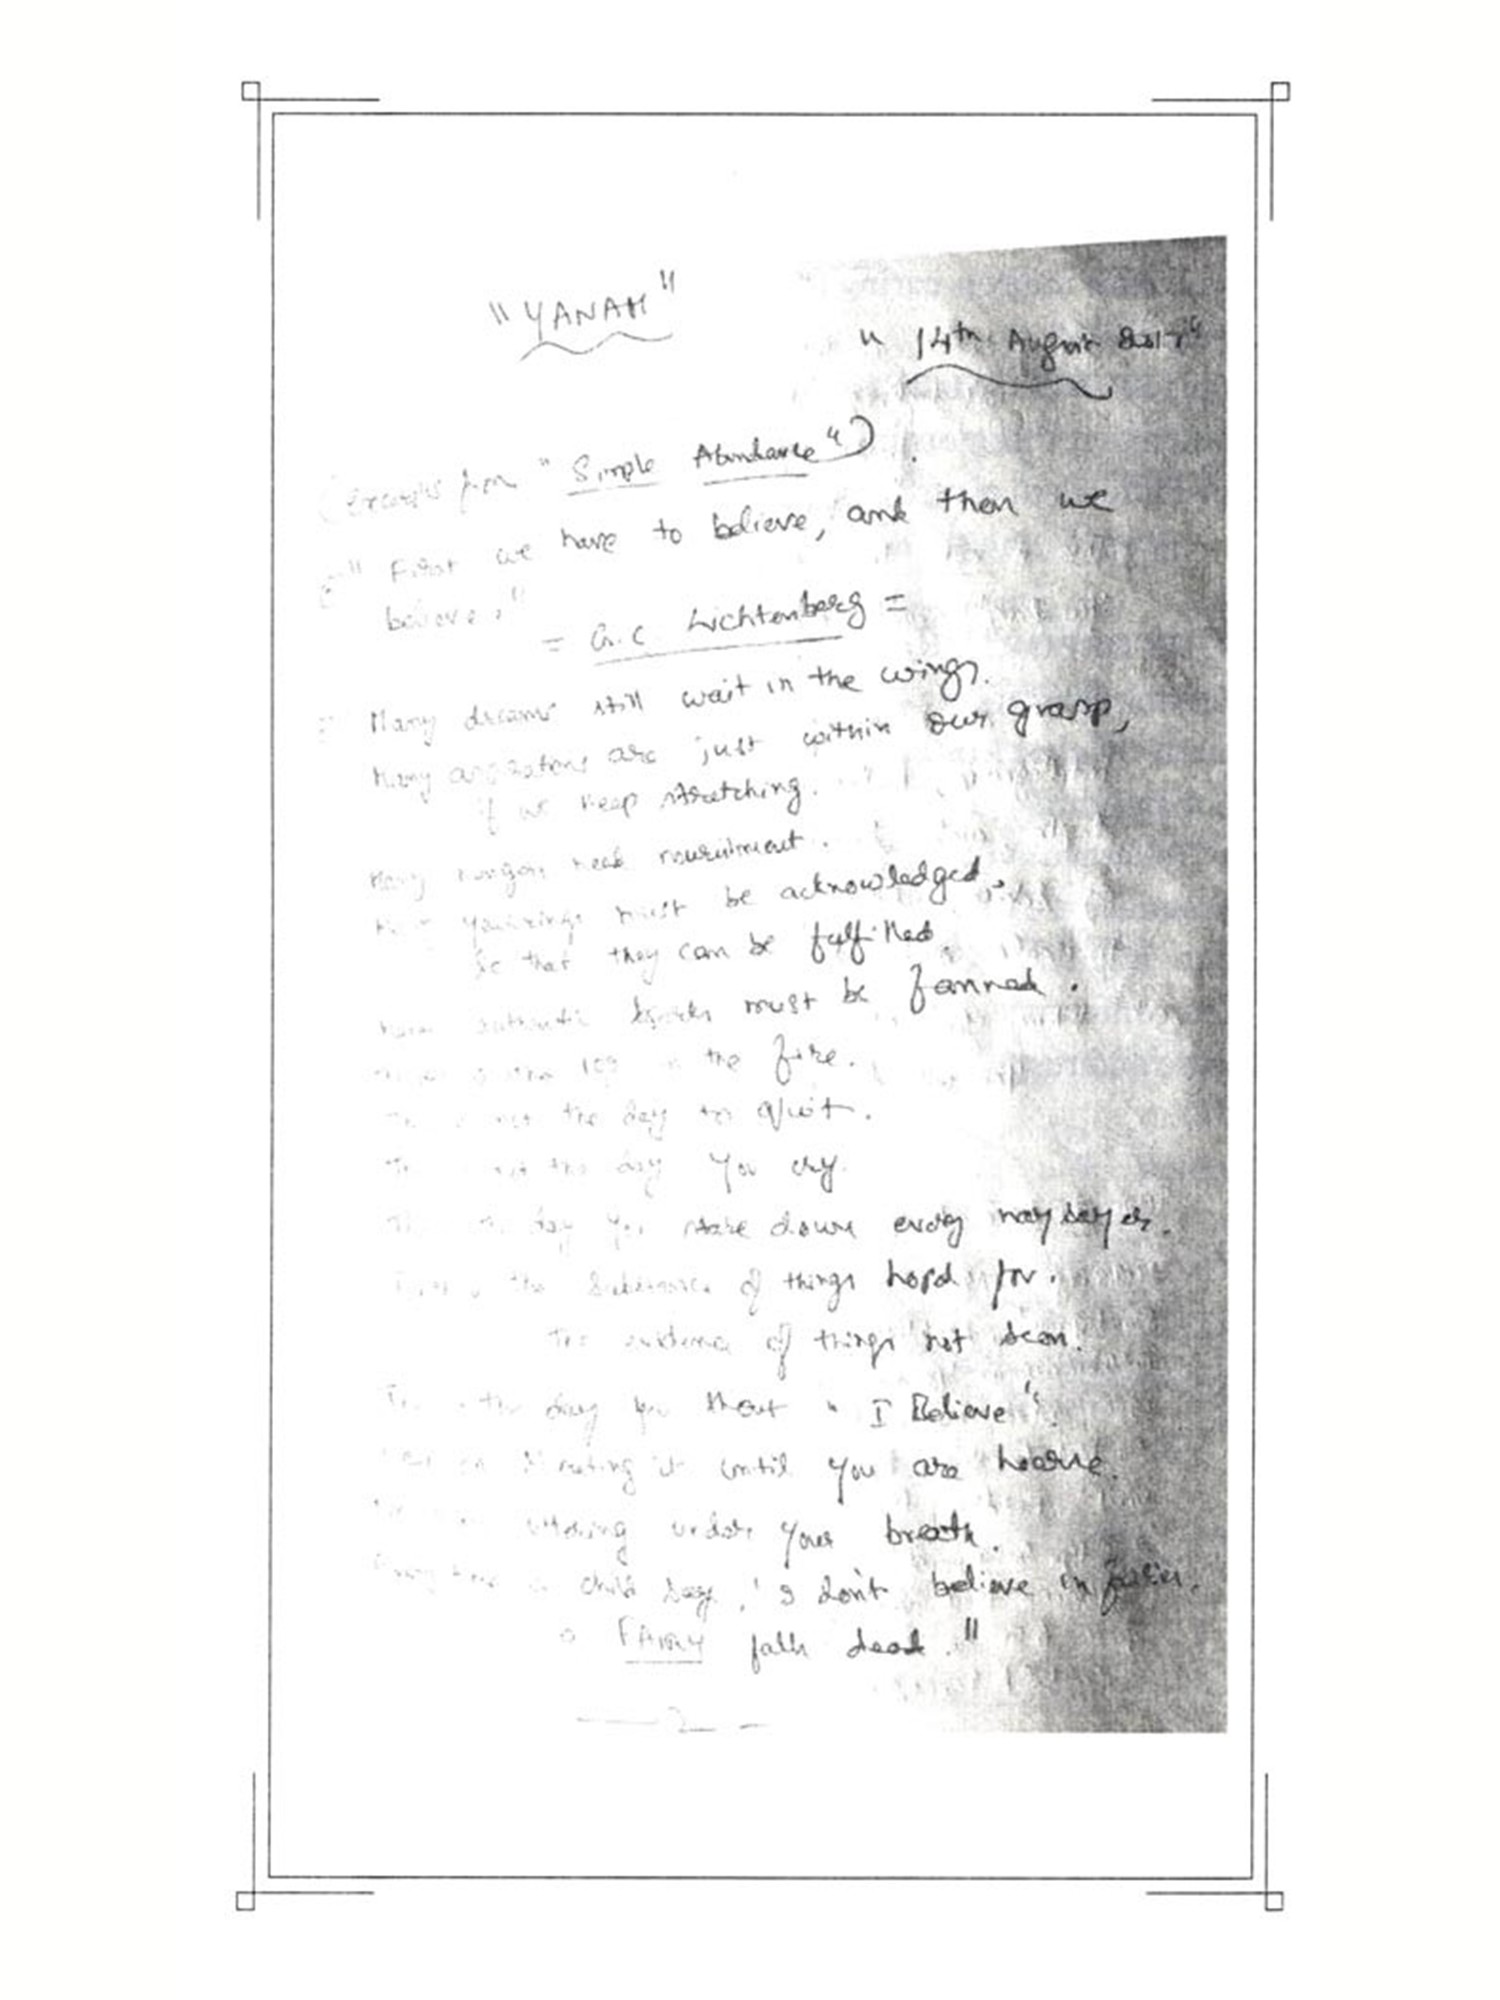 "YANAM"
" 14th August 2017"
(Excerpts from "Simple Abundance")
" First we have to believe, and then we
believe."
= G.C Lichtenberg =
Many dreams still wait in the wings.
Many aspirations are just within our grasp,
if we keep stretching.
Many need nourishment.
Many yearnings must be acknowledged,
So that they can be fulfilled.
authentic sparks must be fanned.
log the fire.
not the day to quit.
not the day you cry.
day you stare down every naysayer.
the substance of things hoped for.
The evidence of things not seen.
the day you shout " I Believe".
it until you are hoarse.
uttering under your breath.
Every time a child says, 'I don't believe in fairies.
a FAIRY falls dead."